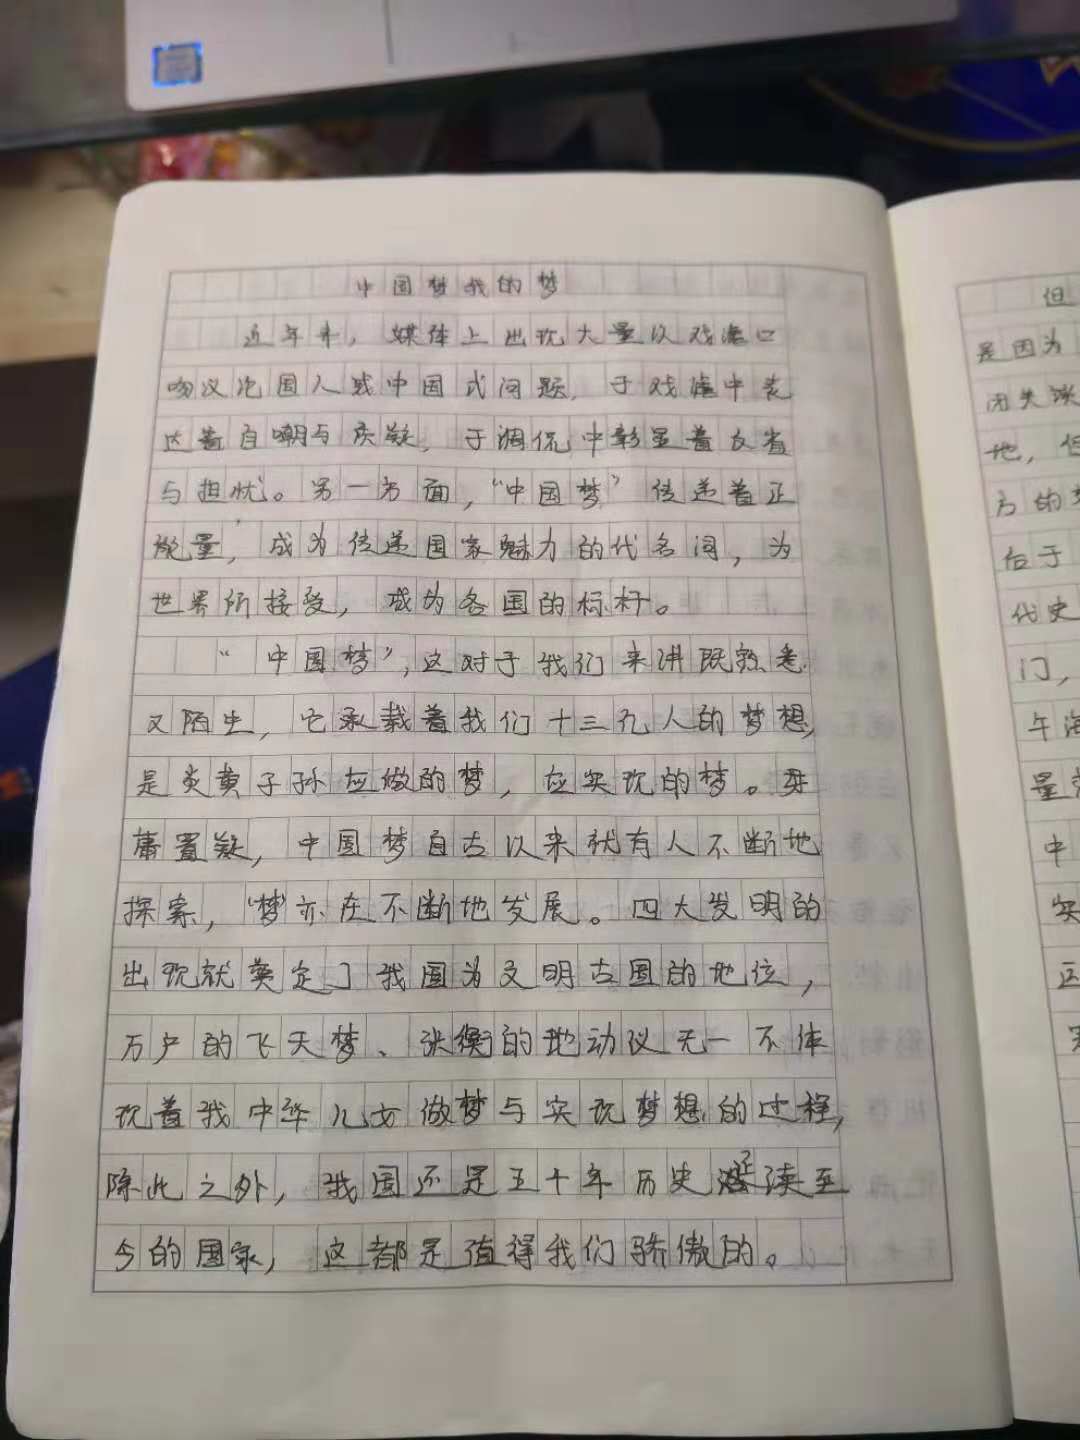 中国梦我的梦
近年来，媒体上出现大量以戏谑口
吻议论国人或中国式问题，于戏谑中表
达着自嘲与质疑，于调侃中彰显着反省
与担忧。另一方面，“中国梦”传递着正
能量，成为传递国家魅力的代名词，为
世界所接受，成为各国的标杆。
“中国梦”，这对于我们来讲既熟悉
又陌生，它承载着我们十三亿人的梦想，
是炎黄子孙应做的梦，应实现的梦。毋
庸置疑，中国梦自古以来就有人不断地
探索，“梦”亦在不断地发展。四大发明的
出现就奠定了我国为文明古国的地位，
万户的飞天梦、张衡的地动仪无一不体
现着我中华儿女做梦与实现梦想的过程，
除此之外，我国还是五十年历史延续至
今的国家，这都是值得我们骄傲的。
但
是因为
闭关
地，但
方的
后于
代史
门，
午海
量
中
实